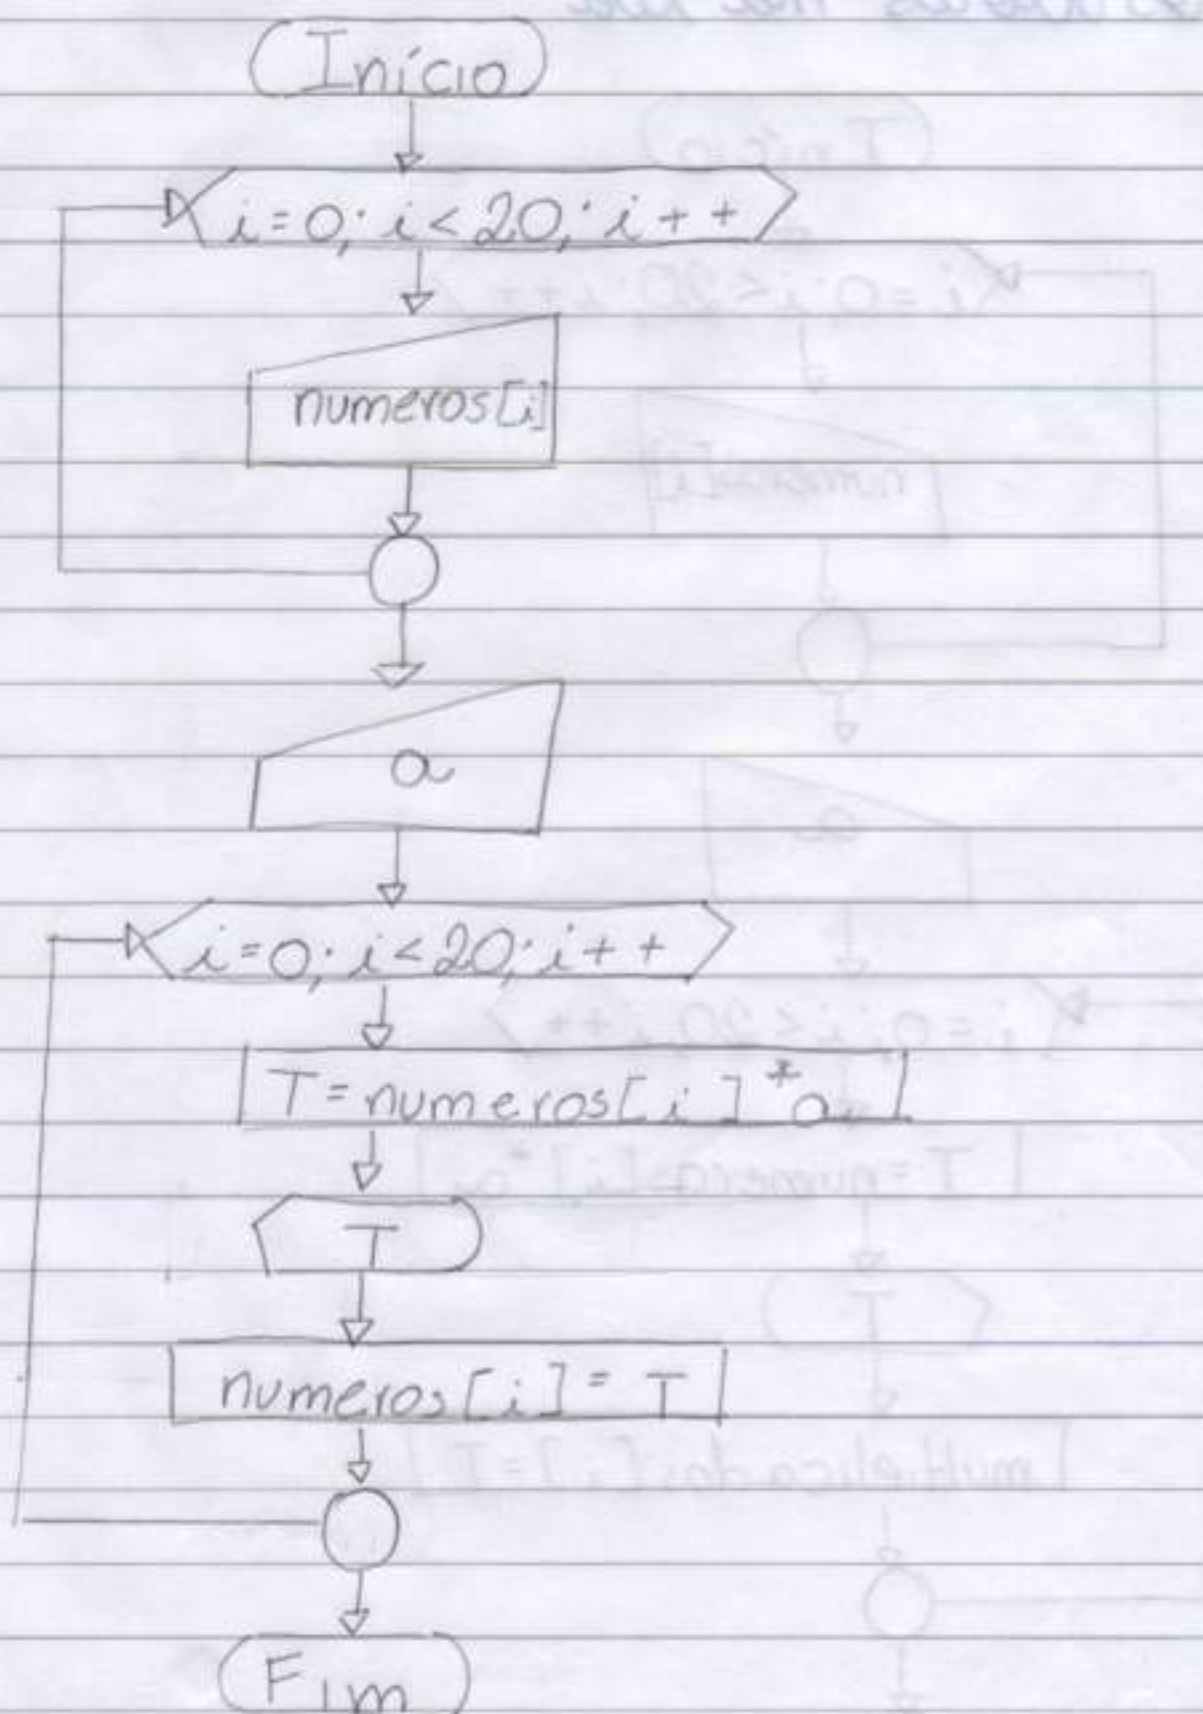 Início
i=0; i<20; i++
numeros[i]
a
i=0; i<20; i++
T=numeros[i]*a
T
numeros[i]=T
Fim